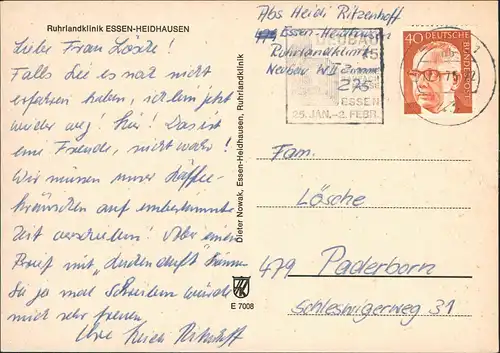 Ruhrlandklinik ESSEN-HEIDHAUSEN
Liebe Frau Lösche!
Falls Sie es noch nicht
erfahren haben, ich bin jetzt
wieder weg! hier! Das ist
eine Freude, nicht wahr!
Wir müssen unser Kaffee-
kränzchen auf unbestimmte
Zeit verschieben! Über einen
Brief mit
Sie ja mal schreiben würde
mich sehr freuen,
Ihre Heidi Ritzenhoff
Dieter Nowak, Essen-Heidhausen, Ruhrlandklinik
E 7008
Abs Heidi Ritzenhoff
Essen-Heidhausen
Ruhrlandklinik
Neubau W II Zimmer
276
DEUBAU
75
ESSEN
25. JAN.-2. FEBR.
40
DEUTSCHE BUNDESPOST
Fam.
Lösche
479 Paderborn
Schleswigerweg 31